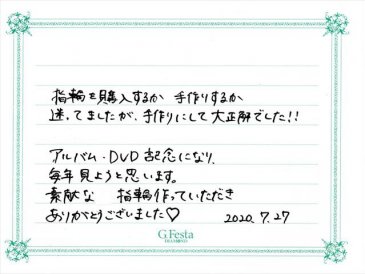 指輪を購入するか 手作りするか
迷ってましたが、手作りにして大正解でした!!
アルバム・DVD 記念になり、
毎年見ようと思います。
素敵な 指輪作っていただき
ありがとうございました♡ 2020.7.27
G.Festa
DIAMOND